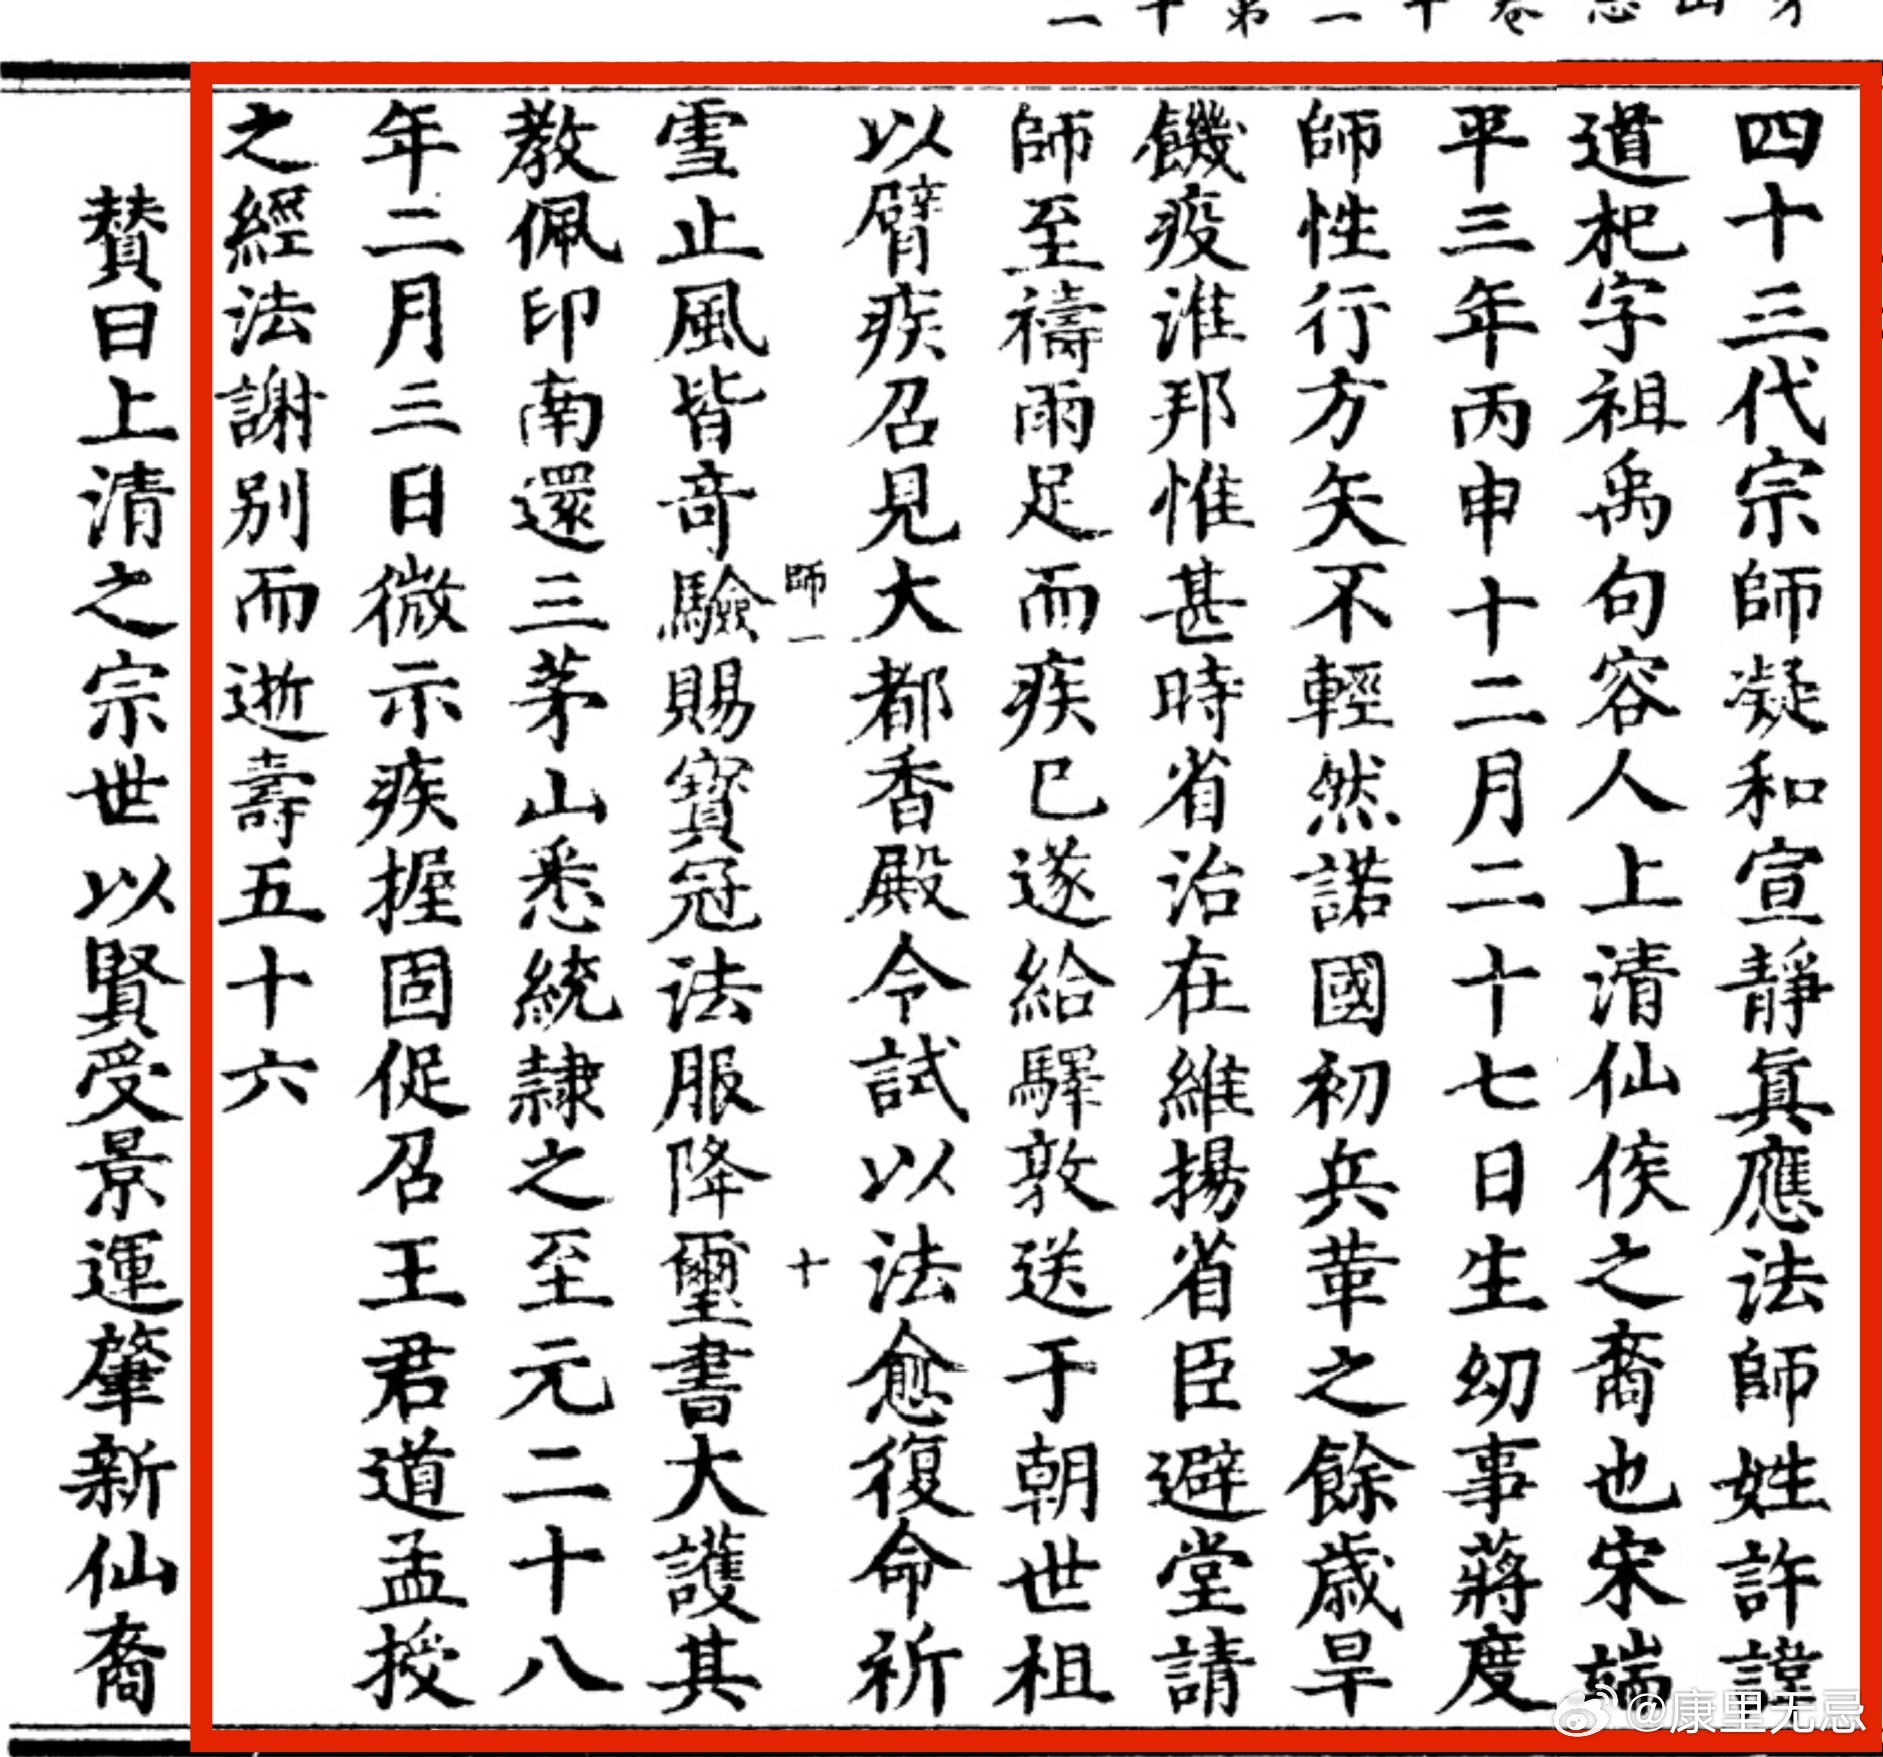 四十三代宗師凝和宣靜真應法師姓許諱
道杞字祖禹句容人上清仙侯之裔也宋端
平三年丙申十二月二十七日生幼事蔣度
師性行方矢不輕然諾國初兵革之餘歲旱
饑疫淮邦惟甚時省治在維揚省臣避堂請
師至禱雨足而疾已遂給驛敦送于朝世祖
以臂疾召見大都香殿令試以法愈復命祈
師一
十
雪止風皆奇驗賜寶冠法服降璽書大護其
教佩印南還三茅山悉統隸之至元二十八
年二月三日微示疾握固促召王君道孟授
之經法謝別而逝壽五十六
贊曰上清之宗世以賢受景運肇新仙裔
@康里无忌